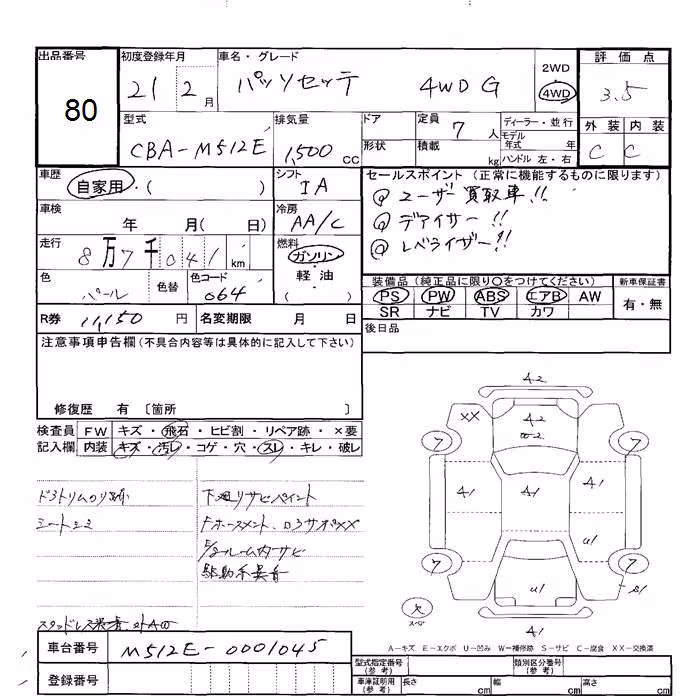 出品番号
80
初度登録年月
21 2月
車名・グレード
パッソセッテ 4WD G
2WD
・
4WD
評価点
3.5
外装 内装
C C
型式
CBA-M512E
排気量
1,500 cc
ドア
定員
7人
形状
積載
kg
ディーラー・並行
モデル
年式 年
ハンドル 左・右
車歴
自家用・( )
シフト
IA
セールスポイント (正常に機能するものに限ります)
① ユーザー買取車!!
② デアイサー!!
③ レベライザー!!
車検
年 月( 日)
冷房
AA/C
走行
8万7千041km
燃料
ガソリン
・
軽油
( )
色
パール
色替
色コード
064
装備品 (純正品に限り○をつけてください)
PS PW ABS エアB AW
SR ナビ TV カワ
新車保証書
有・無
R券 11,150円
名変期限 月 日
後日品
注意事項申告欄(不具合内容等は具体的に記入して下さい)
修復歴 有 〔箇所 〕
検査員 FW キズ・飛石・ヒビ割・リペア跡・×要
記入欄 内装 キズ・汚レ・コゲ・穴・スレ・キレ・破レ
ドアトリムのり跡
シートシミ
下廻リサビペイント
Fホースメント、ロアサポXX
F/Rルーム内サビ
駆動系異音
A2
XX
A2
W2
7 7
A1 A1 A1
U1
7 7
U1
S1
欠
スペア
A1
A-キズ E-エクボ U-凹み W-補修跡 S-サビ C-腐食 XX-交換済
車台番号
M512E-0001045
登録番号
型式指定番号
(参考)
類別区分番号
(参考)
車庫証明用
(参考)
長さ cm
幅 cm
高さ cm